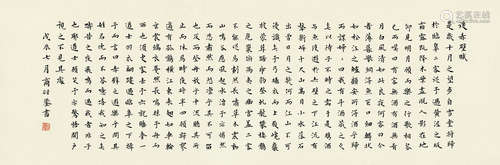 後赤壁賦
是歲十月之望步自雪堂將歸
於臨皋二客從予過黃泥之坂
霜露既降木葉盡脫人影在地
仰見明月顧而樂之行歌相答
已而嘆曰有客無酒有酒無肴
月白風清如此良夜何客曰今
者薄暮舉網得魚巨口細鱗狀
如松江之鱸顧安所得酒乎歸
而謀諸婦婦曰我有斗酒藏之久
矣以待子不時之需於是攜酒與魚
復遊於赤壁之下江流有
聲斷岸千尺山高月小水落石
出曾日月之幾何而江山不可
復識矣予乃攝衣而上履巉巖
披蒙茸踞虎豹登虬龍攀棲鶻
之危巢俯馮夷之幽宮蓋二客
不能從焉劃然長嘯草木震動
山鳴谷應風起水涌予亦悄然
而悲肅然而恐凜乎其不可留
也反而登舟放乎中流聽其所
止而休焉時夜將半四顧寂寥
適有孤鶴橫江東來翅如車輪
玄裳縞衣戛然長鳴掠予舟而西
也須臾客去予亦就睡夢一
道士羽衣翩躚過臨皋之下揖
予而言曰赤壁之遊樂乎問其
姓名俛而不答嗚呼噫嘻我知之矣
疇昔之夜飛鳴而過我者非子
也耶道士顧笑予亦驚寤開戶
視之不見其處
戊辰七月商衍鎏書